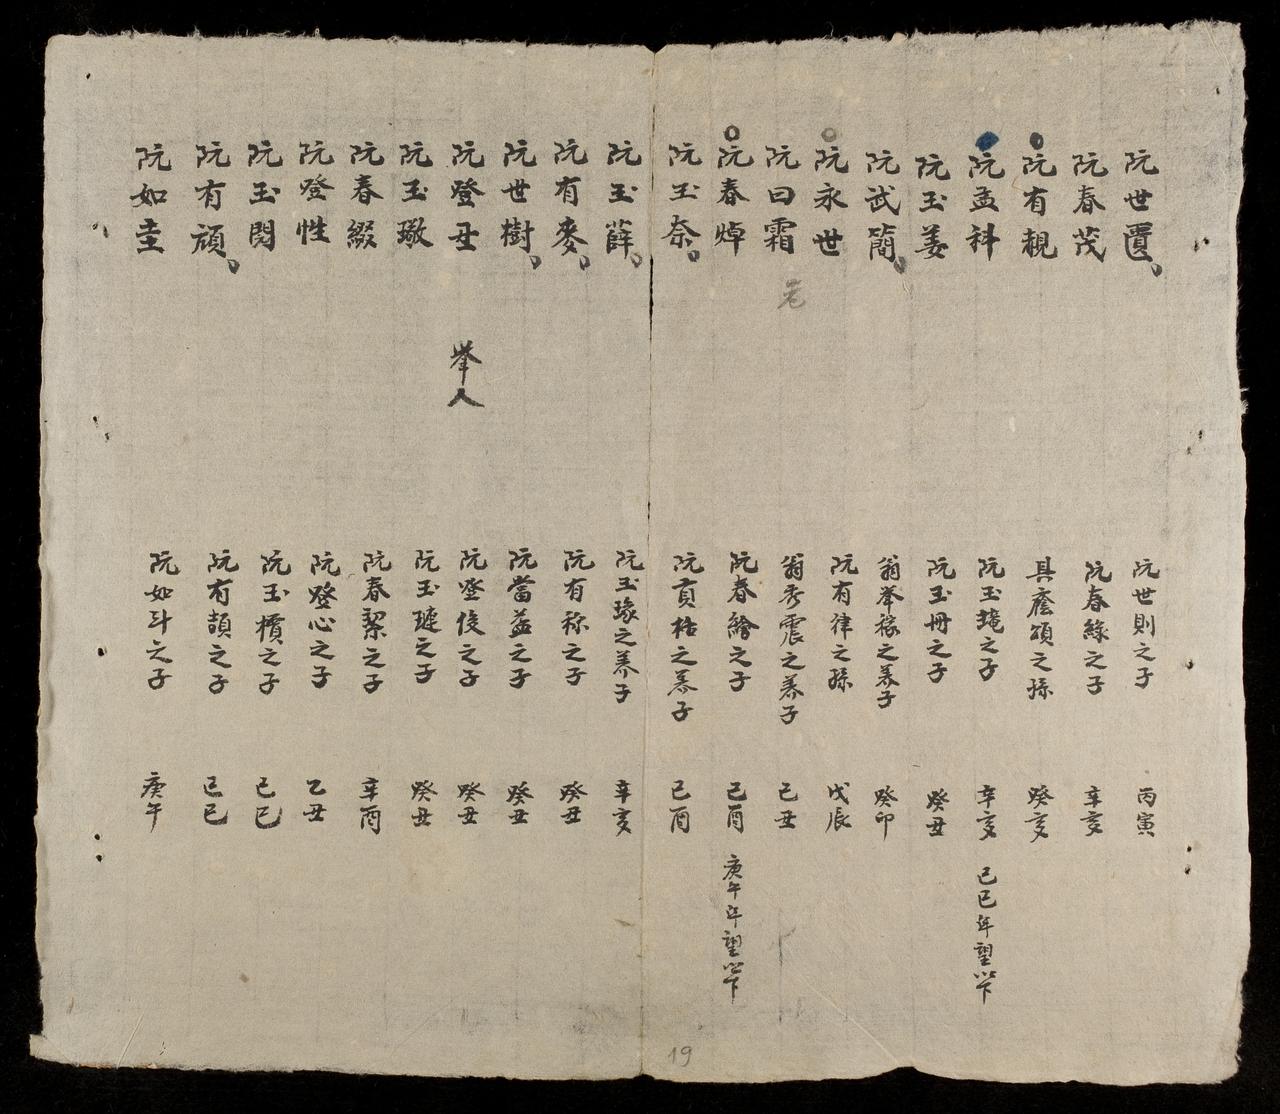 阮世㔼 阮世則之子 丙寅
阮春茂 阮春綠之子 辛亥
阮有親 具蔭頎之孫 癸亥
阮孟科 阮玉琦之子 辛亥 己巳年望以下
阮玉姜 阮玉冊之子 癸丑
阮武簡 翁举稼之养子 癸卯
阮永世 阮有律之孫 戊辰
阮曰霜 老 翁秀震之养子 己丑
阮春焯 阮春繪之子 己酉 庚午年望以下
阮玉奈 阮貢枯之养子 己酉
阮玉薛 阮玉琢之养子 辛亥
阮有麥 阮有称之子 癸丑
阮世樹 阮當益之子 癸丑
阮登丑 举人 阮登俊之子 癸丑
阮玉璥 阮玉璉之子 癸丑
阮春綴 阮春絜之子 辛酉
阮登性 阮登心之子 乙丑
阮玉閔 阮玉櫝之子 己巳
阮有頑 阮有頡之子 己巳
阮如圭 阮如斗之子 庚午
19